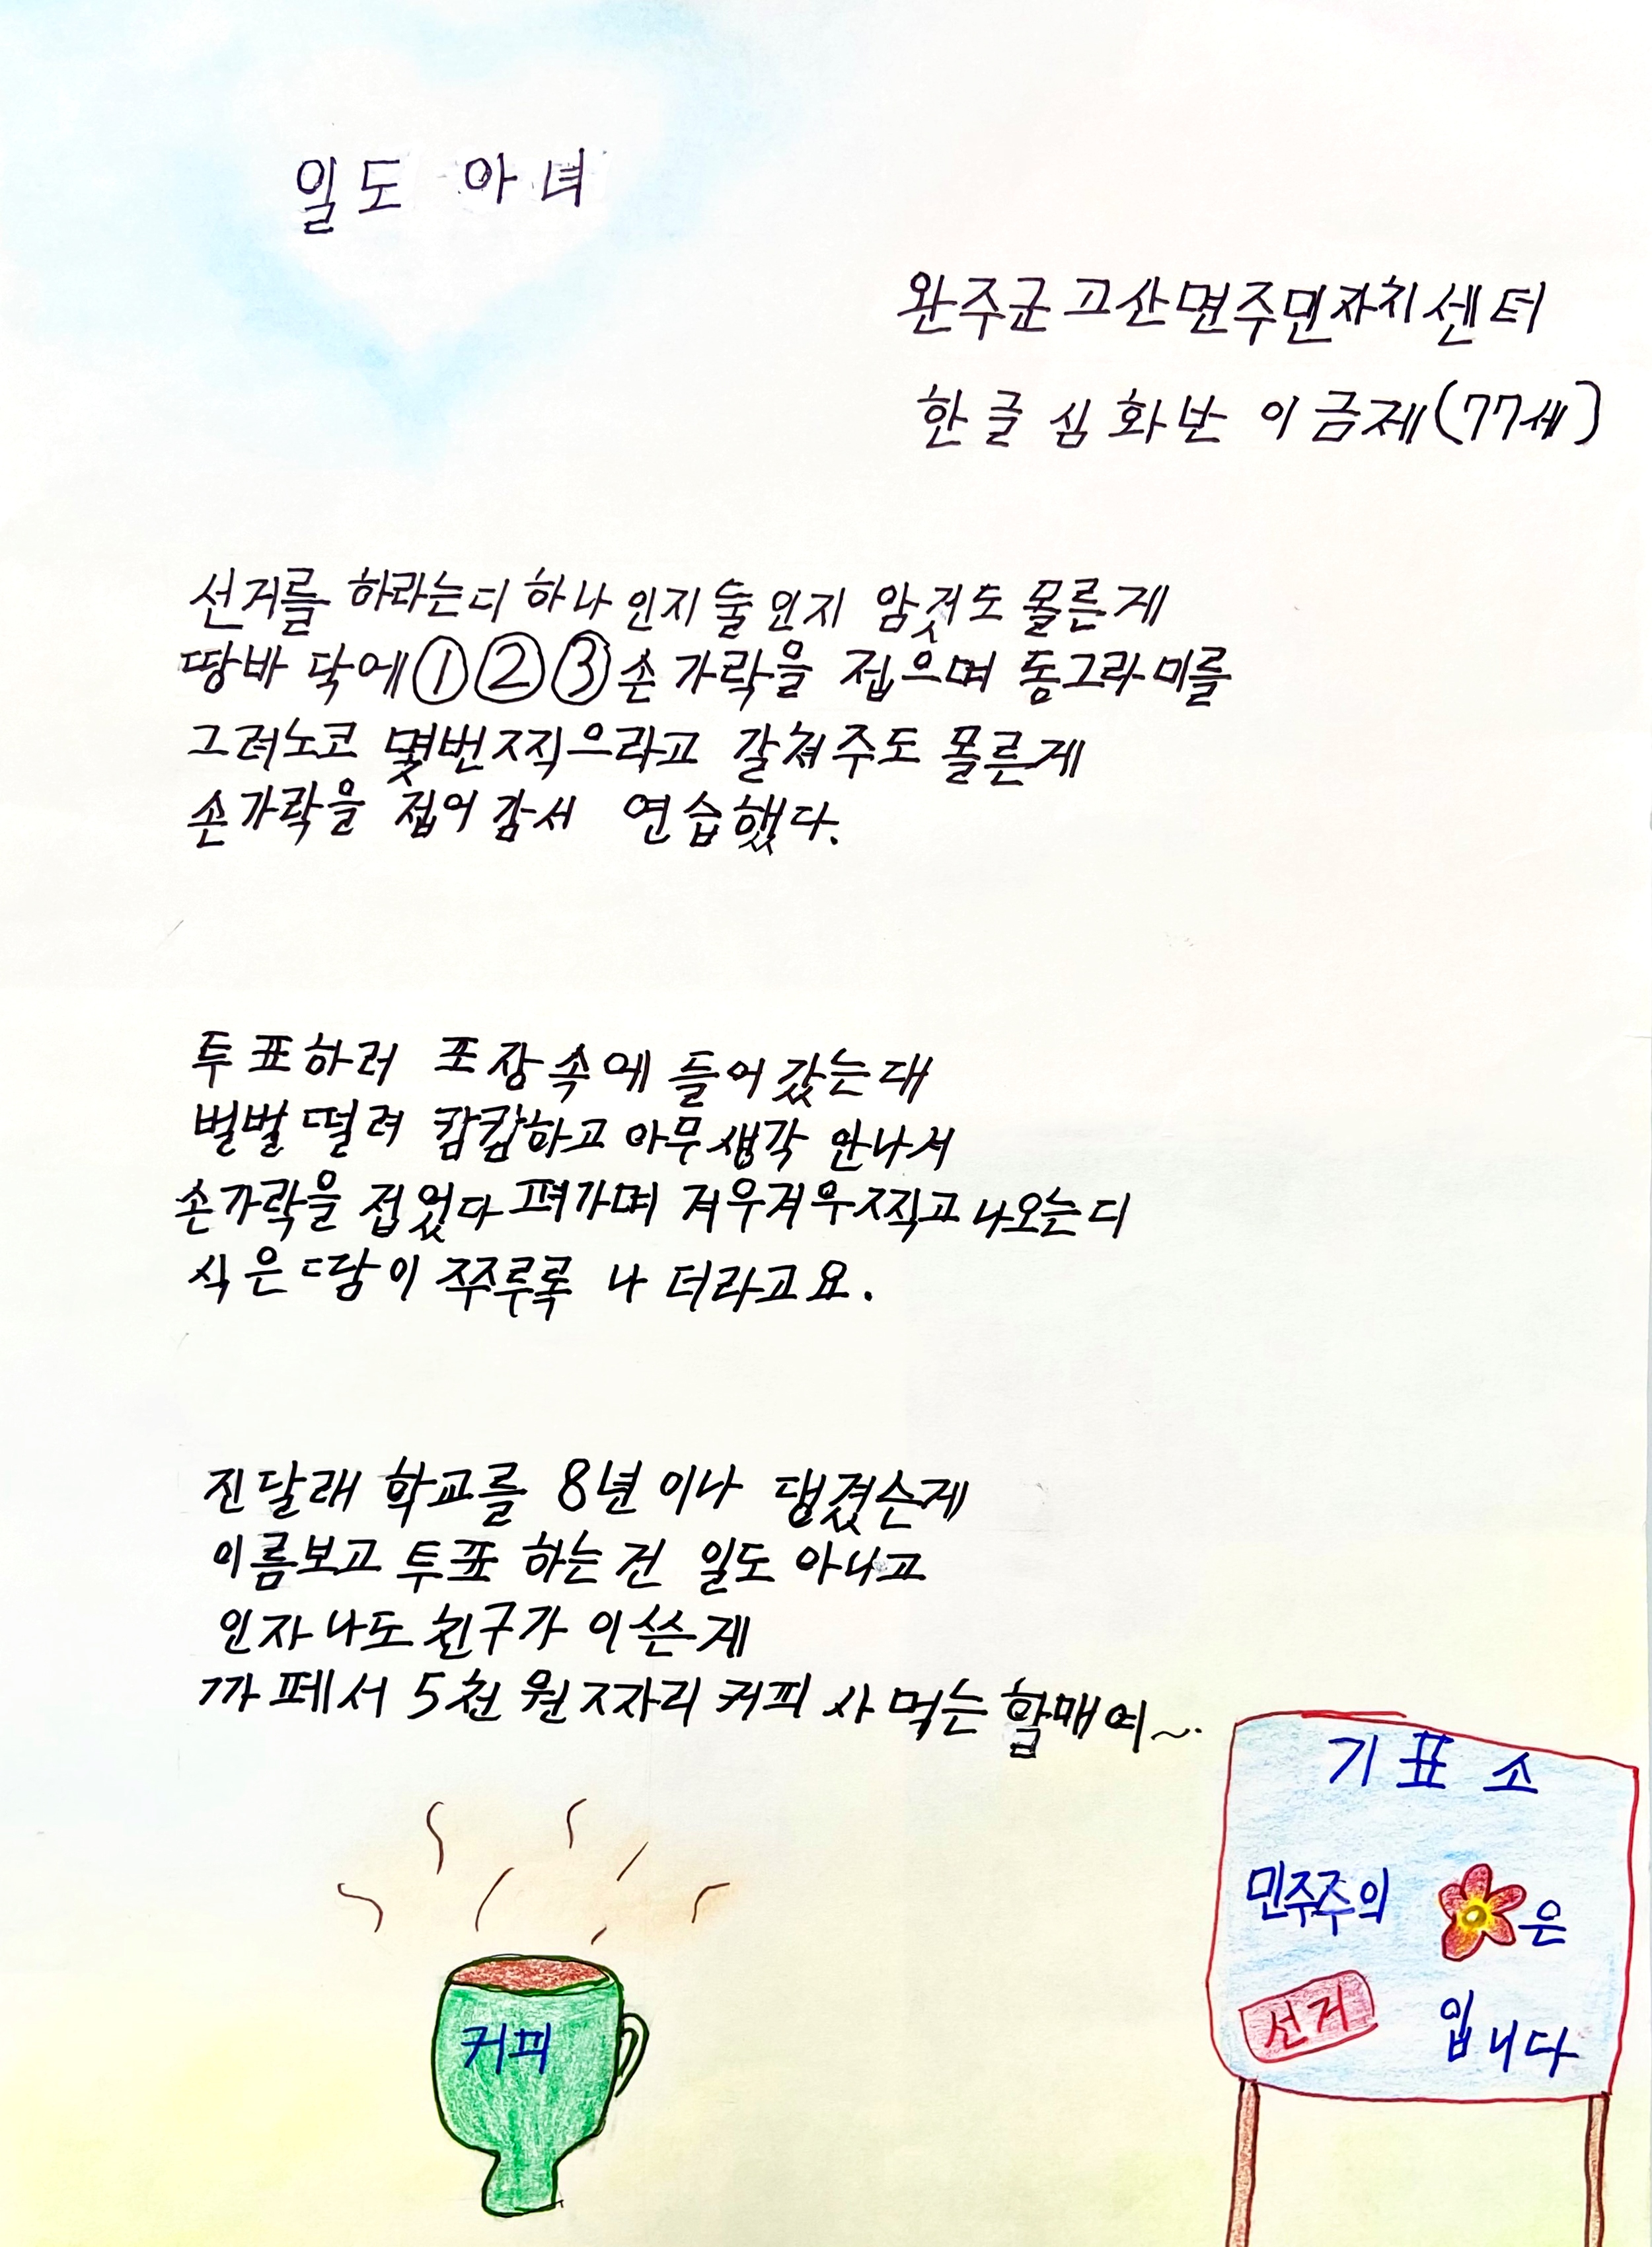 일도 아녀
완주군 고산면주민자치센터
한글 심화반 이금제(77세)
선거를 하라는디 하나인지 둘인지 암것도 몰른게
땅바닥에 ① ② ③ 손가락을 접으며 동그라미를
그려노코 몇번찍으라고 갈쳐주도 몰른게
손가락을 접어감서 연습했다.
투표하러 포장속에 들어갔는대
벌벌 떨려 캄캄하고 아무생각 안나서
손가락을 접었다 펴가며 겨우겨우찍고 나오는디
식은땀이 쭈루룩 나더라고요.
진달래 학교를 8년이나 댕겼슨게
이름보고 투표 하는건 일도 아니고
인자 나도 친구가 이쓴게
까페서 5천원짜리 커피 사먹는 할매여~..
기표소
민주주의 은
선거 입니다
커피